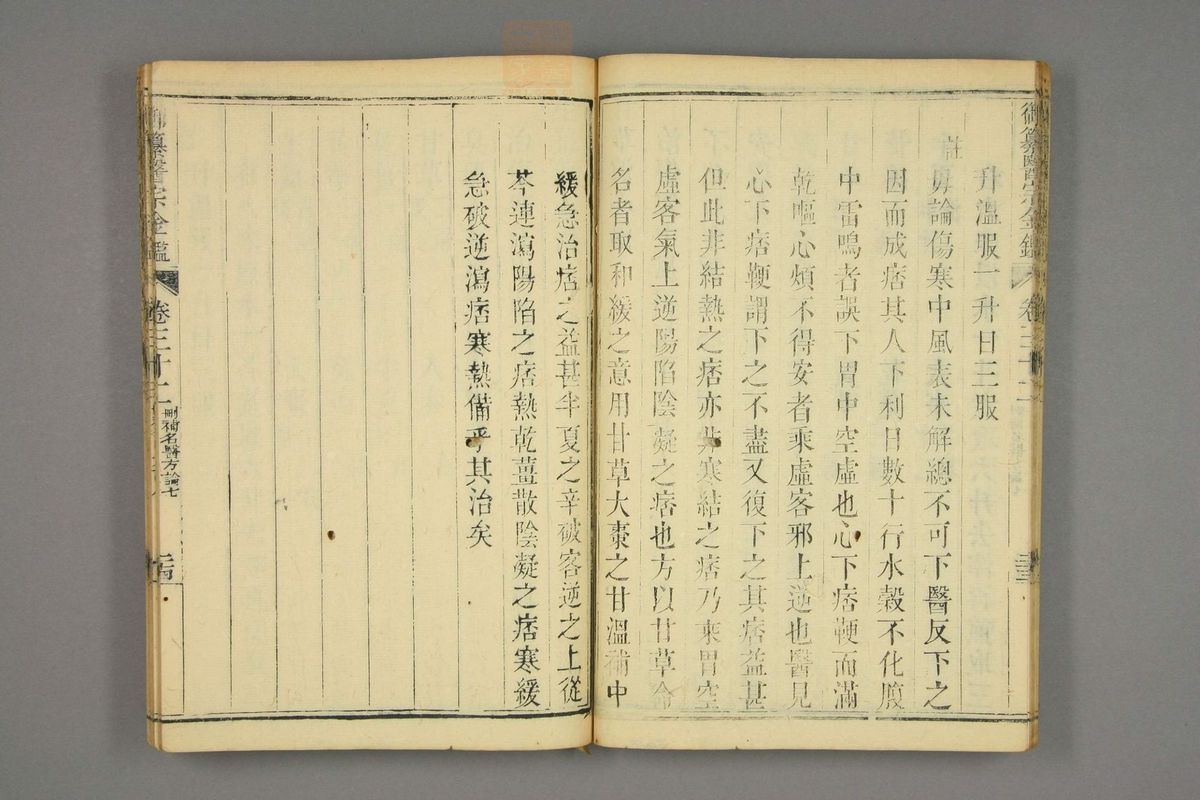 御纂醫宗金鑑 卷三十二
升溫服一升日三服
註
毋論傷寒中風表未解總不可下醫反下之
因而成痞其人下利日數十行水穀不化腹
中雷鳴者誤下胃中空虛也心下痞鞕而滿
乾嘔心煩不得安者乘虛客邪上逆也醫見
心下痞鞕謂下之不盡又復下之其痞益甚
但此非結熱之痞亦非寒結之痞乃乘胃空
虛客氣上逆陽陷陰凝之痞也方以甘草命
名者取和緩之意用甘草大棗之甘溫補中
緩急治痞之益甚半夏之辛破客逆之上從
芩連瀉陽陷之痞熱乾薑散陰凝之痞寒緩
急破逆瀉痞寒熱備乎其治矣
御纂醫宗金鑑 卷三十二 刪補名醫方論七